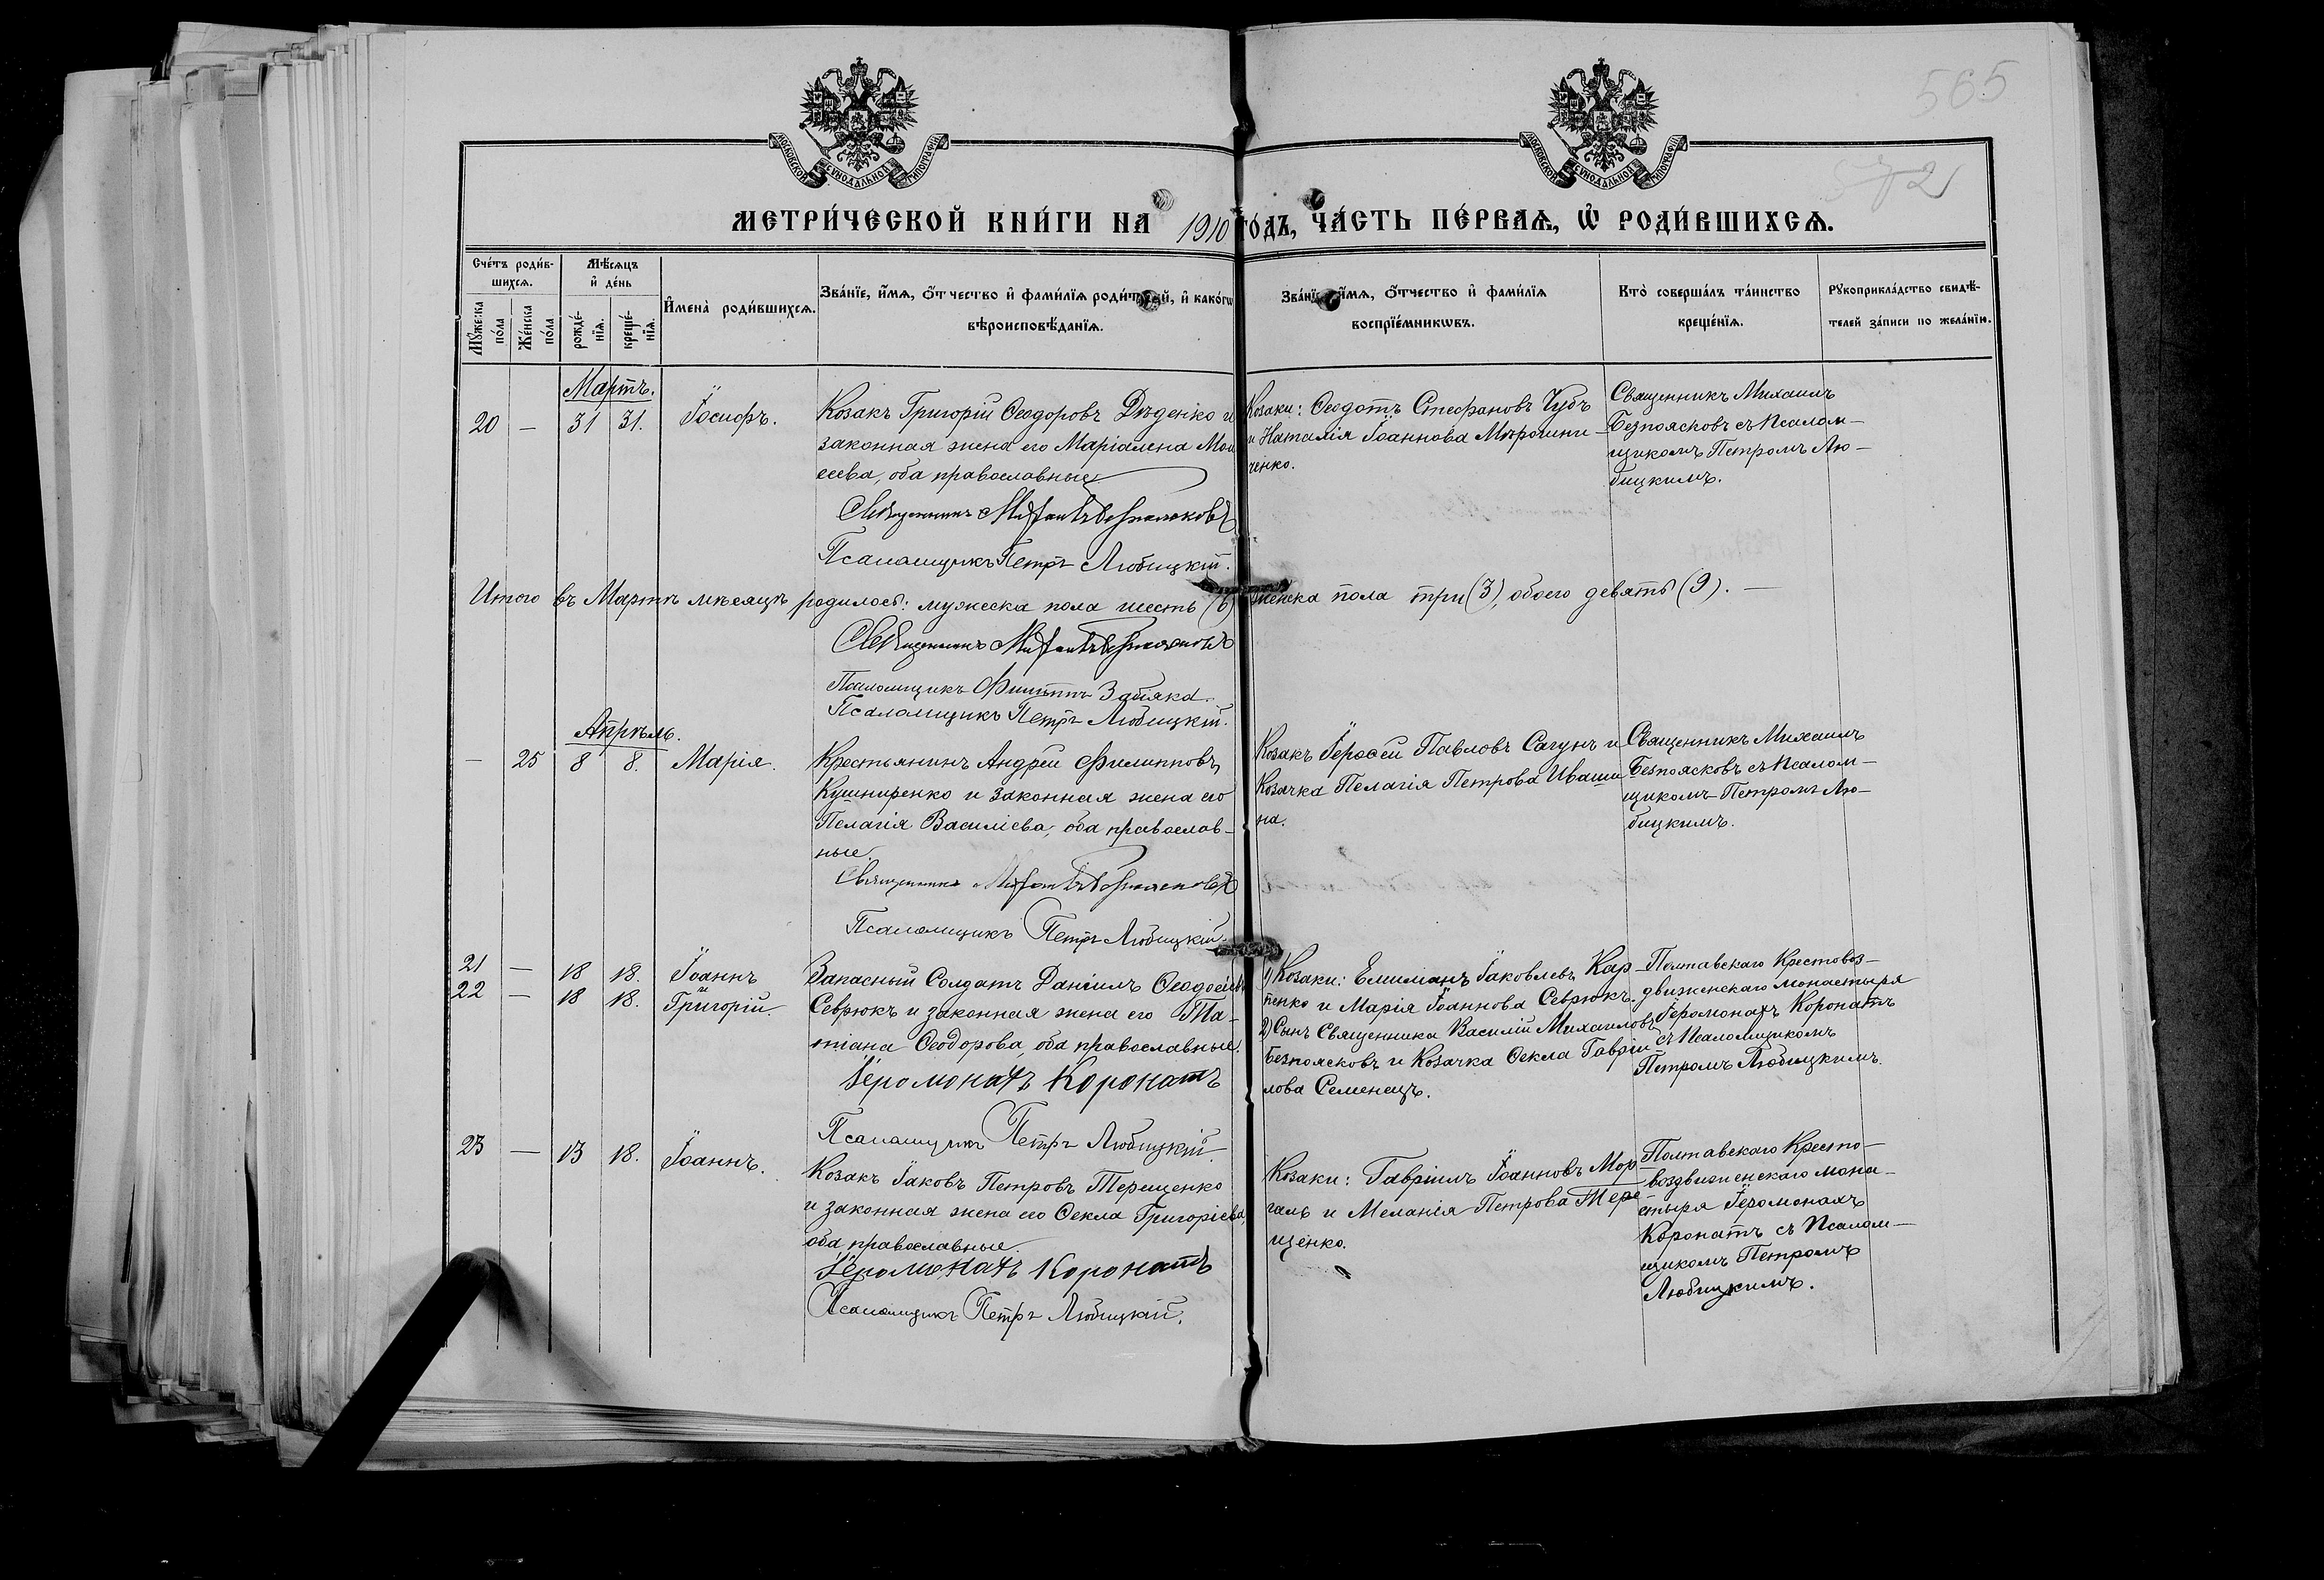 565
572
МОСКОВСКОЙ СѴНОДАЛЬНОЙ ТИПОГРАФІИ
МОСКОВСКОЙ СѴНОДАЛЬНОЙ ТИПОГРАФІИ
МЕТРИ́ЧЕСКОЙ КНИ́ГИ НА 1910 ГО́ДЪ, ЧА́СТЬ ПЕ́РВАѦ, Ѡ҆ РОДИ́ВШИХСѦ.
Сче́тъ роди́в-
шихсѧ.
Мꙋ́жеска
по́ла
Же́нска
по́ла
Мѣ́сѧцъ
и҆ де́нь
рожде́-
нїѧ.
креще́-
нїѧ.
И҆мена̀ роди́вшихсѧ.
Зва́нїе, и҆́мѧ, ѻ҆́тчество и҆ фами́лїѧ роди́телей, и҆ како́гѡ
вѣроисповѣ́данїѧ.
Зва́нїе, и҆́мѧ, ѻ҆́тчество и҆ фами́лїѧ
воспрїе́мникѡвъ.
Кто̀ соверша́лъ та́инство
креще́нїѧ.
Рꙋкоприкла́дство свидѣ́-
телей за́писи по жела́нїю.
Мартъ.
20 — 31 31. Іосифъ.
Козакъ Григорій Ѳеодоровъ Дѣденко и
законная жена его Маріамена Мои
сеева, оба православные
Священникъ Михаилъ Безпоясковъ
Псаломщикъ Петръ Любицкій.
Козаки: Ѳеодотъ Стефановъ Чубъ
и Наталія Іоаннова Мирошни-
ченко.
Священникъ Михаилъ
Безпоясковъ съ Псалом-
щикомъ Петромъ Лю-
бицкимъ.
Итого въ Мартѣ мѣсяцѣ родилось: мужеска пола шесть (6) женска пола три (3), обоего девять (9). —
Священникъ Михаилъ Безпоясковъ
Псаломщикъ Филиппъ Забіяка.
Псаломщикъ Петръ Любицкій.
Апрѣль.
— 25 8 8. Марія.
Крестьянинъ Андрей Филипповъ
Кушниренко и законная жена его
Пелагія Василіева, оба православ-
ные.
Священникъ Михаилъ Безпоясковъ
Псаломщикъ Петръ Любицкій.
Козакъ Іеровей Павловъ Сагунъ и
Козачка Пелагія Петрова Иваши
на.
Священникъ Михаилъ
Безпоясковъ съ Псалом-
щикомъ Петромъ Лю-
бицкимъ.
21 — 18 18. Іоаннъ
и
22 — 18 18. Григорій
Запасный Солдатъ Даніилъ Ѳеодосіевъ
Севрюкъ и законная жена его Та-
тіана Ѳеодорова, оба православные.
Іеромонахъ Коронатъ
Псаломщикъ Петръ Любицкій.
1) Козаки: Емиліанъ Іаковлевъ Кар-
пенко и Марія Іоаннова Севрюкъ.
2) Сынъ Священника Василій Михаиловъ
Безпоясковъ и Козачка Ѳекла Гаврии
лова Семенецъ.
Полтавскаго Крестовоз-
движенскаго монастыря
Іеромонахъ Коронатъ
съ Псаломщикомъ
Петромъ Любицкимъ.
23 — 13 18. Іоаннъ.
Козакъ Іаковъ Петровъ Терещенко
и законная жена его Ѳекла Григоріева,
оба православные.
Іеромонахъ Коронатъ
Псаломщикъ Петръ Любицкій.
Козаки: Гавріилъ Іоанновъ Мор-
галь и Меланія Петрова Тере
щенко.
Полтавскаго Кресто-
воздвиженскаго мона-
стыря Іеромонахъ
Коронатъ съ Псалом-
щикомъ Петромъ
Любицкимъ.